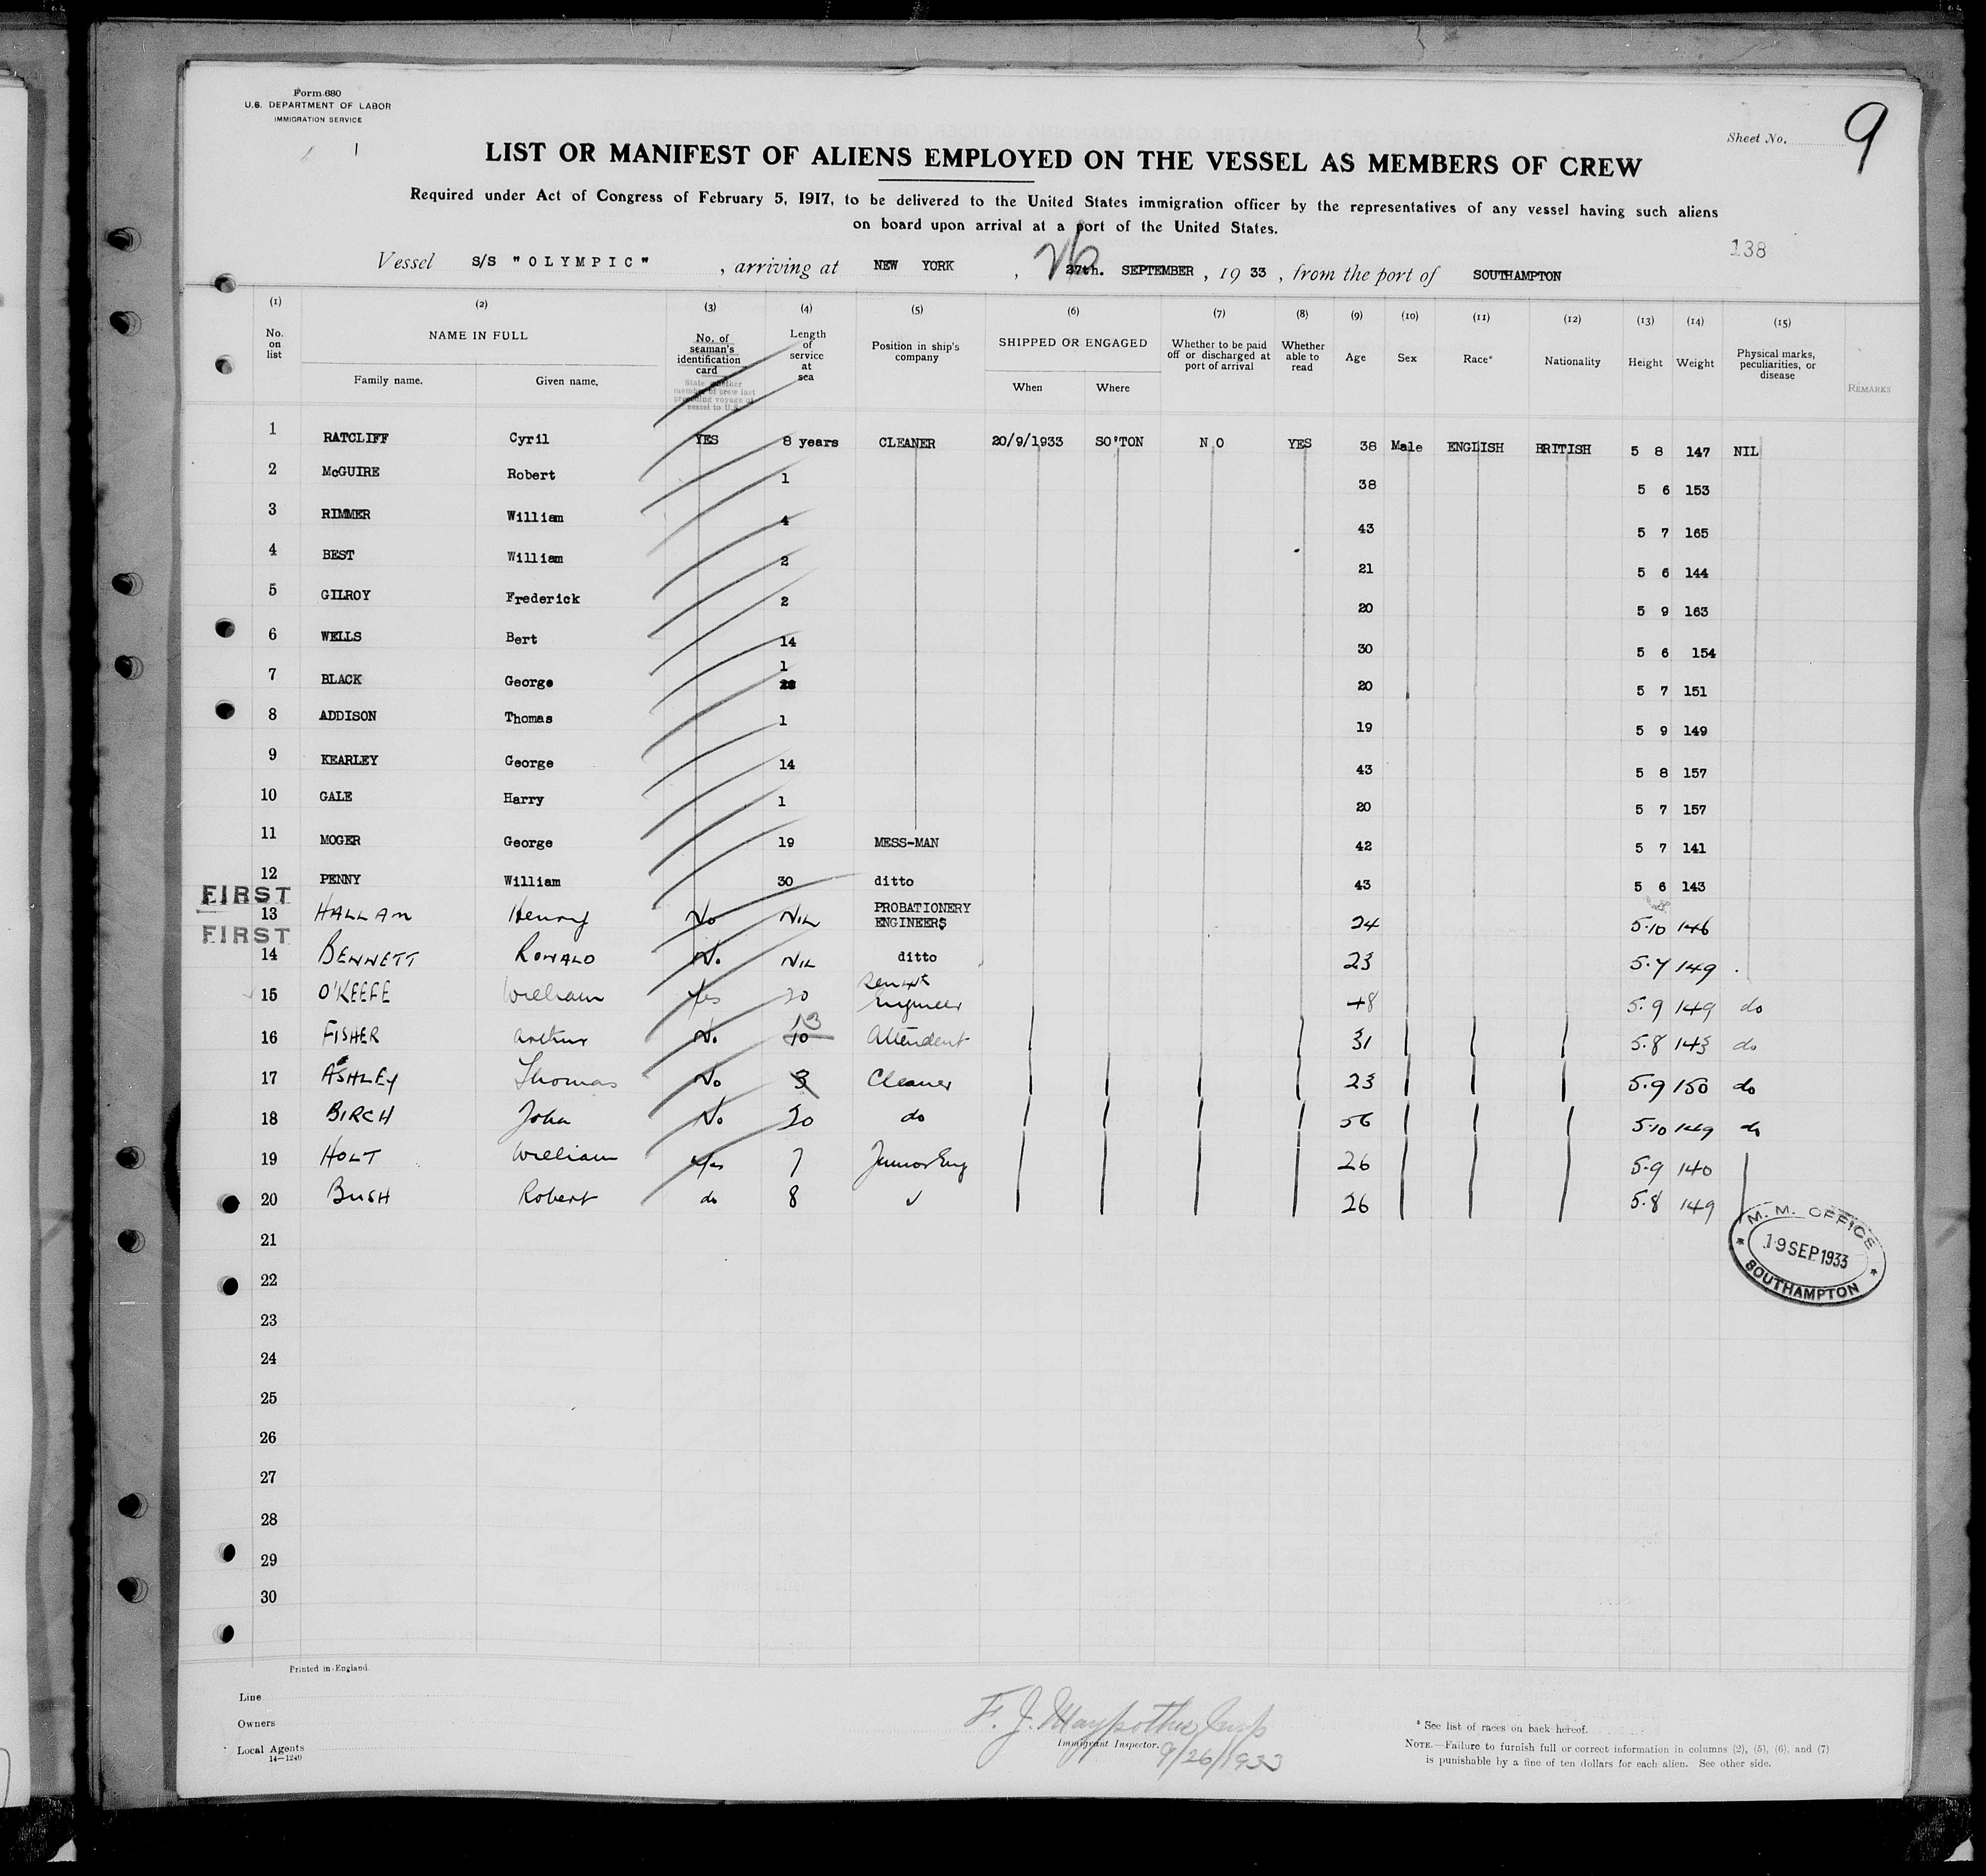 Form 680
U.S. DEPARTMENT OF LABOR
IMMIGRATION SERVICE
Sheet No. 9
LIST OR MANIFEST OF ALIENS EMPLOYED ON THE VESSEL AS MEMBERS OF CREW
Required under Act of Congress of February 5, 1917, to be delivered to the United States immigration officer by the representatives of any vessel having such aliens
on board upon arrival at a port of the United States.
138
Vessel S/S "OLYMPIC", arriving at NEW YORK, 26 27th. SEPTEMBER, 1933, from the port of SOUTHAMPTON
(1) (2) (3) (4) (5) (6) (7) (8) (9) (10) (11) (12) (13) (14) (15)
No. on list
NAME IN FULL
Family name. Given name.
No. of seaman's identification card
State whether member of crew last preceding voyage of vessel to U.S.
Length of service at sea
Position in ship's company
SHIPPED OR ENGAGED
When Where
Whether to be paid off or discharged at port of arrival
Whether able to read
Age
Sex
Race*
Nationality
Height
Weight
Physical marks, peculiarities, or disease
REMARKS
1 RATCLIFF Cyril YES 8 years CLEANER 20/9/1933 SO'TON NO YES 38 Male ENGLISH BRITISH 5 8 147 NIL
2 McGUIRE Robert 1 38 5 6 153
3 RIMMER William 4 43 5 7 165
4 BEST William 2 21 5 6 144
5 GILROY Frederick 2 20 5 9 163
6 WELLS Bert 14 30 5 6 154
7 BLACK George 1 20 5 7 151
8 ADDISON Thomas 1 19 5 9 149
9 KEARLEY George 14 43 5 8 157
10 GALE Harry 1 20 5 7 157
11 MOGER George 19 MESS-MAN 42 5 7 141
12 PENNY William 30 ditto 43 5 6 143
FIRST
13 HALLAM Henry No NIL PROBATIONERY ENGINEERS 24 5.10 146
FIRST
14 BENNETT RONALD No. NIL ditto 23 5.7 149
15 O'KEEFE William Yes 20 Engineer 48 5.9 149 do
16 FISHER Arthur No. 13 10 Attendent 31 5.8 143 do
17 ASHLEY Thomas No 3 Cleaner 23 5.9 150 do
18 BIRCH John No 30 do 56 5.10 149 do
19 HOLT William Yes 7 Junior Eng 26 5.9 140
20 BUSH Robert do 8 26 5.8 149
21
22
23
24
25
26
27
28
29
30
M. M. OFFICE
19 SEP 1933
SOUTHAMPTON
Printed in England.
Line
Owners
Local Agents
14—1240
F. J.
Immigrant Inspector.
9/26/1933
* See list of races on back hereof.
NOTE.—Failure to furnish full or correct information in columns (2), (5), (6), and (7)
is punishable by a fine of ten dollars for each alien. See other side.